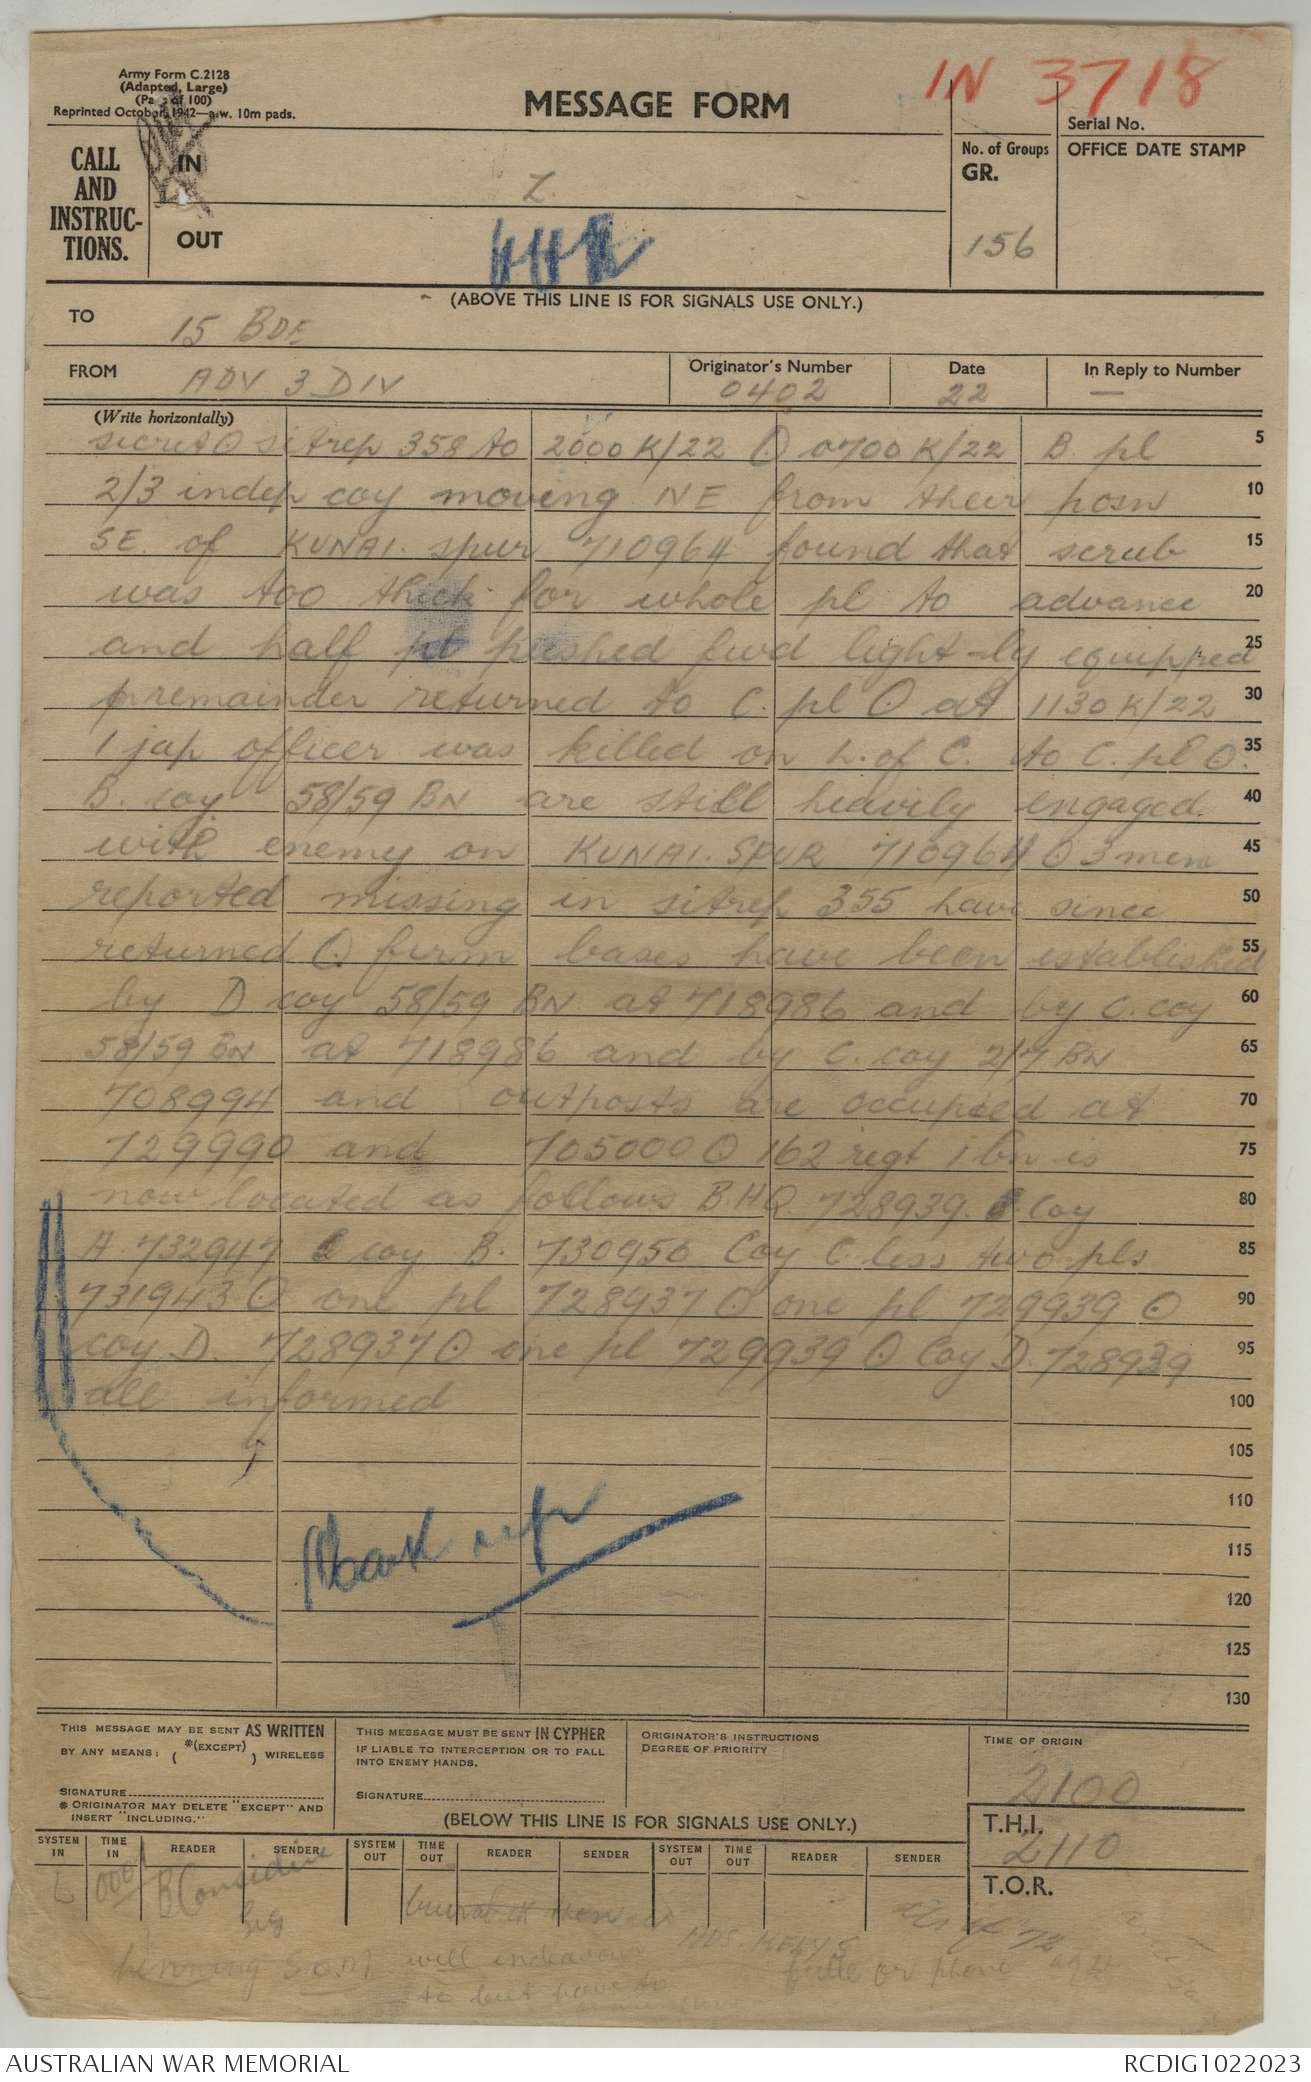 IN 3718
Army Form C.2128
(Adapted, Large)
(Pads of 100)
Reprinted October, 1942—a.w. 10m pads.
MESSAGE FORM
Serial No.
CALL
AND
INSTRUC-
TIONS.
IN
OUT
Z
No. of Groups
GR.
156
OFFICE DATE STAMP
(ABOVE THIS LINE IS FOR SIGNALS USE ONLY.)
TO 15 BDE
FROM ADV 3 DIV
Originator's Number 0402
Date 22
In Reply to Number —
(Write horizontally)
secret O sitrep 358 to 2000 K/22 O 0700 K/22 B. pl 5
2/3 indep coy moving NE from their posn 10
SE. of KUNAI. spur 710964 found that scrub 15
was too thick for whole pl to advance 20
and half pl pushed fwd light-ly equipped 25
remainder returned to C. pl O at 1130 K/22 30
1 jap officer was killed on L. of C. to C. pl O. 35
B. coy 58/59 BN are still heavily engaged 40
with enemy on KUNAI. SPUR 710964 O 3 men 45
reported missing in sitrep 355 have since 50
returned O firm bases have been established 55
by D coy 58/59 BN at 718986 and by C. coy 60
58/59 BN at 718986 and by C. coy 2/7 BN 65
708994 and outposts are occupied at 70
729990 and 705000 O 162 regt 1 bn is 75
now located as follows B.HQ. 728939. Coy 80
A 732947 coy B. 730956 Coy C less two pls 85
731943 O one pl 728937 O one pl 729939 O 90
coy D. 728937 O one pl 729939 O Coy D. 728939 95
all informed 100
105
110
Mark up 115
120
125
130
THIS MESSAGE MAY BE SENT AS WRITTEN
BY ANY MEANS: ( *(EXCEPT) ) WIRELESS
SIGNATURE
* ORIGINATOR MAY DELETE "EXCEPT" AND
INSERT "INCLUDING."
THIS MESSAGE MUST BE SENT IN CYPHER
IF LIABLE TO INTERCEPTION OR TO FALL
INTO ENEMY HANDS.
SIGNATURE
ORIGINATOR'S INSTRUCTIONS
DEGREE OF PRIORITY
TIME OF ORIGIN
2100
(BELOW THIS LINE IS FOR SIGNALS USE ONLY.)
T.H.I.
2110
T.O.R.
SYSTEM IN
TIME IN
READER
SENDER
SYSTEM OUT
TIME OUT
READER
SENDER
SYSTEM OUT
TIME OUT
READER
SENDER
L 0001 B Considine
Sig
will endeavour
to but have to
or phone
AUSTRALIAN WAR MEMORIAL
RCDIG1022023